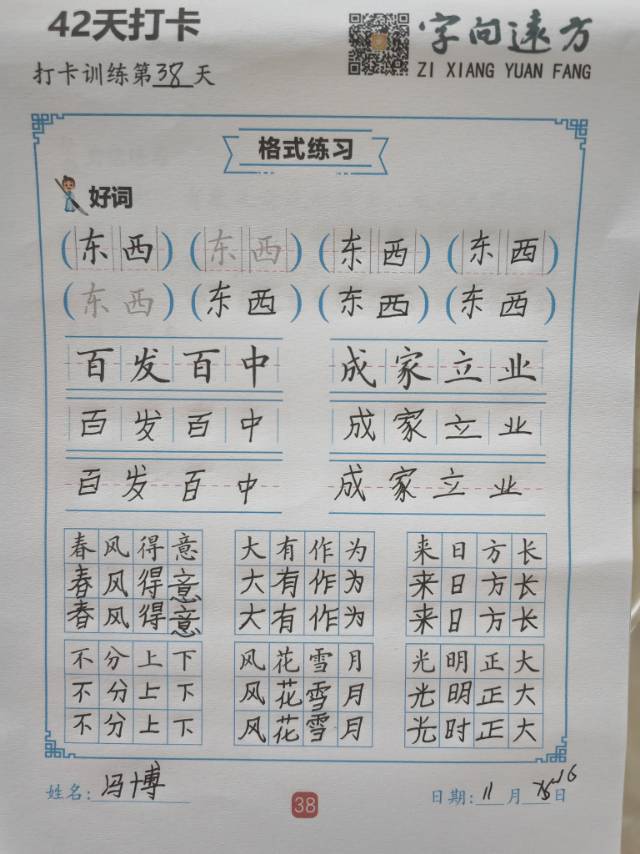 42天打卡
字向远方
打卡训练第38天
ZI XIANG YUAN FANG
格式练习
好词
(东西) (东西) (东西) (东西)
(东西) (东西) (东西) (东西)
百发百中 成家立业
百发百中 成家立业
百发百中 成家立业
春风得意 大有作为 来日方长
春风得意 大有作为 来日方长
春风得意 大有作为 来日方长
不分上下 风花雪月 光明正大
不分上下 风花雪月 光明正大
不分上下 风花雪月 光时正大
姓名:冯博 38 日期:11月16日